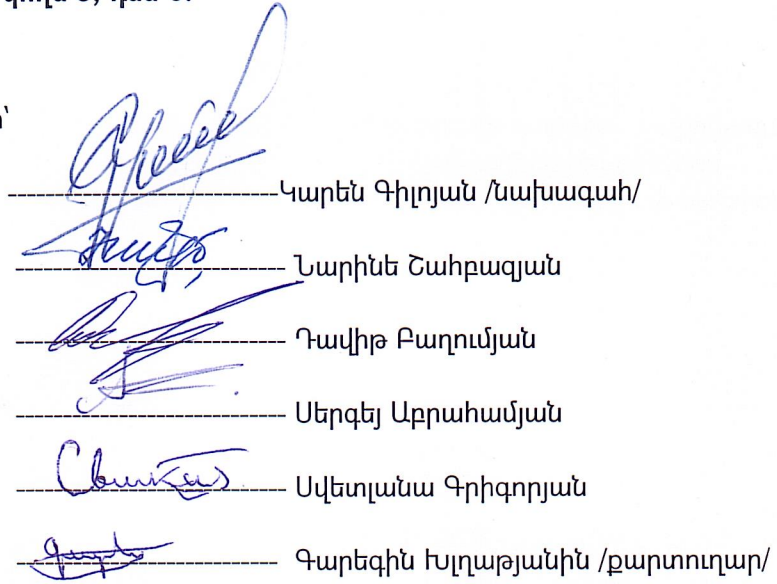 Կարեն Գիլոյան /նախագահ/
Նարինե Շահբազյան
Դավիթ Բաղումյան
Սերգեյ Աբրահամյան
Սվետլանա Գրիգորյան
Գարեգին Խլղաթյանին /քարտուղար/